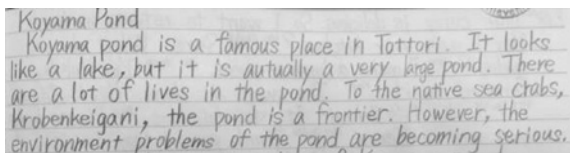 Koyama Pond
Koyama pond is a famous place in Tottori. It looks
like a lake, but it is autually a very large pond. There
are a lot of lives in the pond. To the native sea crabs,
Krobenkeigani, the pond is a frontier. However, the
environment problems of the pond are becoming serious.